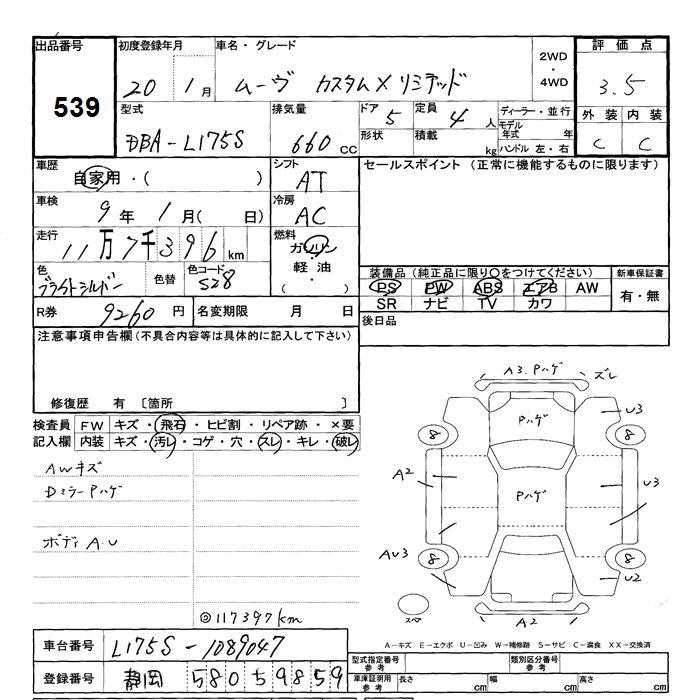 出品番号
539
初度登録年月
20 1月
車名・グレード
ムーヴ カスタムX リミテッド
2WD
・
4WD
評価点
3.5
外装 内装
C C
型式
DBA-L175S
排気量
660cc
ドア 5
形状
定員 4人
積載 kg
ディーラー・並行
モデル年式 年
ハンドル 左・右
車歴
自家用・( )
シフト
AT
セールスポイント(正常に機能するものに限ります)
車検
9年 1月( 日)
冷房
AC
走行
11万7千396km
燃料
ガソリン
・
軽油
・
( )
色
ブライトシルバー
色替
色コード
S28
装備品(純正品に限り○をつけてください)
PS PW ABS エアB AW
SR ナビ TV カワ
新車保証書
有・無
R券 9260円
名変期限 月 日
後日品
注意事項申告欄(不具合内容等は具体的に記入して下さい)
修復歴 有 〔箇所 〕
検査員記入欄
FW キズ・飛石・ヒビ割・リペア跡・×要
内装 キズ・汚レ・コゲ・穴・スレ・キレ・破レ
AWキズ
DミラーPハゲ
ボディA.U
◎117397km
A3.Pハゲ ズレ
Pハゲ
U3
8 8
A2
Pハゲ
U3
AU3
8 8
U2
スペア
A2
A-キズ E-エクボ U-凹み W-補修跡 S-サビ C-腐食 XX-交換済
車台番号 L175S-1089047
登録番号 静岡 580 5 9859
型式指定番号 参考
類別区分番号 参考
車庫証明用 参考
長さ cm 幅 cm 高さ cm